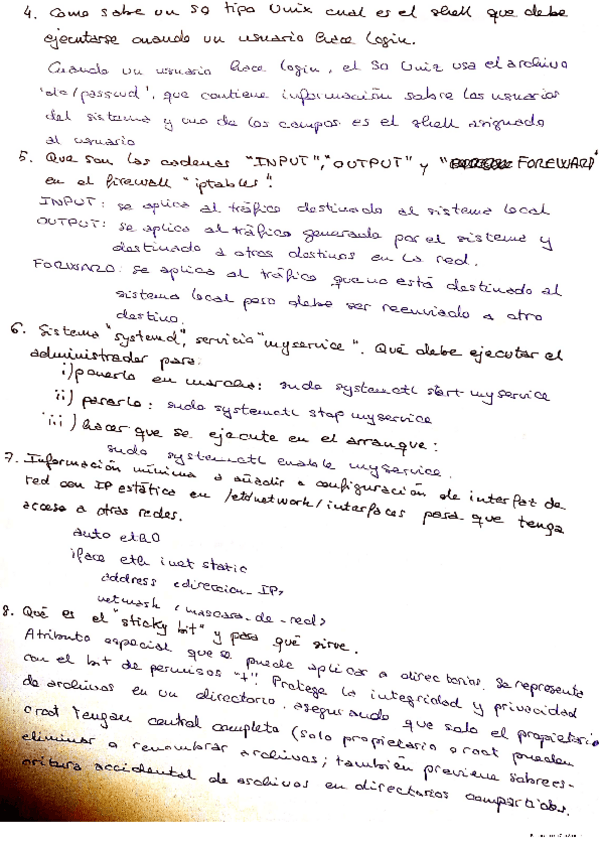 4. Como sabe un SO tipo Unix cual es el shell que debe
ejecutarse cuando un usuario hace login.
Cuando un usuario hace login, el SO Unix usa el archivo
'etc/passwd', que contiene información sobre los usuarios
del sistema y uno de los campos es el shell asignado
al usuario
5. Que son las cadenas "INPUT", "OUTPUT" y " FOREWARD"
en el firewall "iptables".
INPUT: se aplica al tráfico destinado al sistema local
OUTPUT: se aplica al tráfico generado por el sistema y
destinado a otros destinos en la red.
FORWARD: se aplica al tráfico que no está destinado al
sistema local pero debe ser reenviado a otro
destino.
6. Sistema "systemd", servicio "myservice". Qué debe ejecutar el
administrador para:
i) ponerlo en marcha: sudo systemctl start myservice
ii) pararlo: sudo systemctl stop myservice
iii) hacer que se ejecute en el arranque:
sudo systemctl enable myservice.
7. Información mínima a añadir a configuración de interfaz de
red con IP estática en /etc/network/interfaces para que tenga
acceso a otras redes.
auto eth0
iface eth inet static
address <direccion_IP>
netmask <mascara_de_red>
8. Qué es el "sticky bit" y para qué sirve.
Atributo especial que se puede aplicar a directorios. Se representa
con el bit de permisos "t". Protege la integridad y privacidad
de archivos en un directorio, asegurando que solo el propietario
o root tengan control completo (solo propietario o root pueden
eliminar o renombrar archivos; también previene sobrees-
critura accidental de archivos en directorios compartidos.